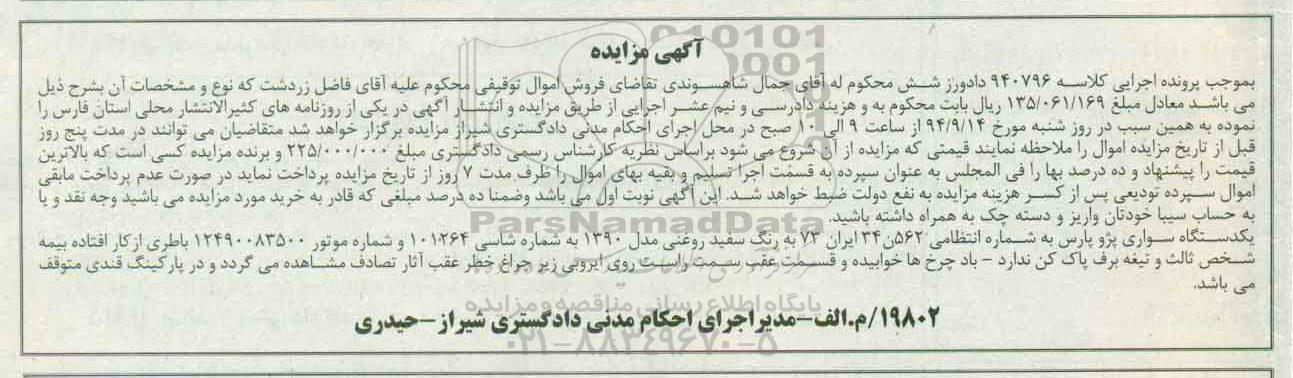 آگهی مزایده
بموجب پرونده اجرایی کلاسه ۹۴۰۷۹۶ دادورز شش محکوم له آقای جمال شاهسوندی تقاضای فروش اموال توقیفی محکوم علیه آقای فاضل زردشت که نوع و مشخصات آن بشرح ذیل
می باشد معادل مبلغ ۱۳۵/۰۶۱/۱۶۹ ریال بابت محکوم به و هزینه دادرسی و نیم عشر اجرایی از طریق مزایده و انتشار آگهی در یکی از روزنامه های کثیرالانتشار محلی استان فارس را
نموده به همین سبب در روز شنبه مورخ ۹۴/۹/۱۴ از ساعت ۹ الی ۱۰ صبح در محل اجرای احکام مدنی دادگستری شیراز مزایده برگزار خواهد شد متقاضیان می توانند در مدت پنج روز
قبل از تاریخ مزایده اموال را ملاحظه نمایند قیمتی که مزایده از آن شروع می شود براساس نظریه کارشناس رسمی دادگستری مبلغ ۲۲۵/۰۰۰/۰۰۰ و برنده مزایده کسی است که بالاترین
قیمت را پیشنهاد و ده درصد بها را فی المجلس به عنوان سپرده به قسمت اجرا تسلیم و بقیه بهای اموال را ظرف مدت ۷ روز از تاریخ مزایده پرداخت نماید در صورت عدم پرداخت مابقی
اموال سپرده تودیعی پس از کسر هزینه مزایده به نفع دولت ضبط خواهد شد. این آگهی نوبت اول می باشد وضمنا ده درصد مبلغی که قادر به خرید مورد مزایده می باشید وجه نقد و یا
به حساب سیبا خودتان واریز و دسته چک به همراه داشته باشید.
یکدستگاه سواری پژو پارس به شماره انتظامی ۵۶۲ن۳۴ ایران ۷۳ به رنگ سفید روغنی مدل ۱۳۹۰ به شماره شاسی ۱۰۱۲۶۴ و شماره موتور ۱۲۴۹۰۰۸۳۵۰۰ باطری ازکار افتاده بیمه
شخص ثالث و تیغه برف پاک کن ندارد - باد چرخ ها خوابیده و قسمت عقب سمت راست روی ایرویی زیر چراغ خطر عقب آثار تصادف مشاهده می گردد و در پارکینگ قندی متوقف
می باشد.
۱۹۸۰۲/م.الف-مدیراجرای احکام مدنی دادگستری شیراز-حیدری
ParsNamadData
پایگاه اطلاع رسانی مناقصه و مزایده
۰۲۱-۸۸۳۴۹۶۷۰-۵